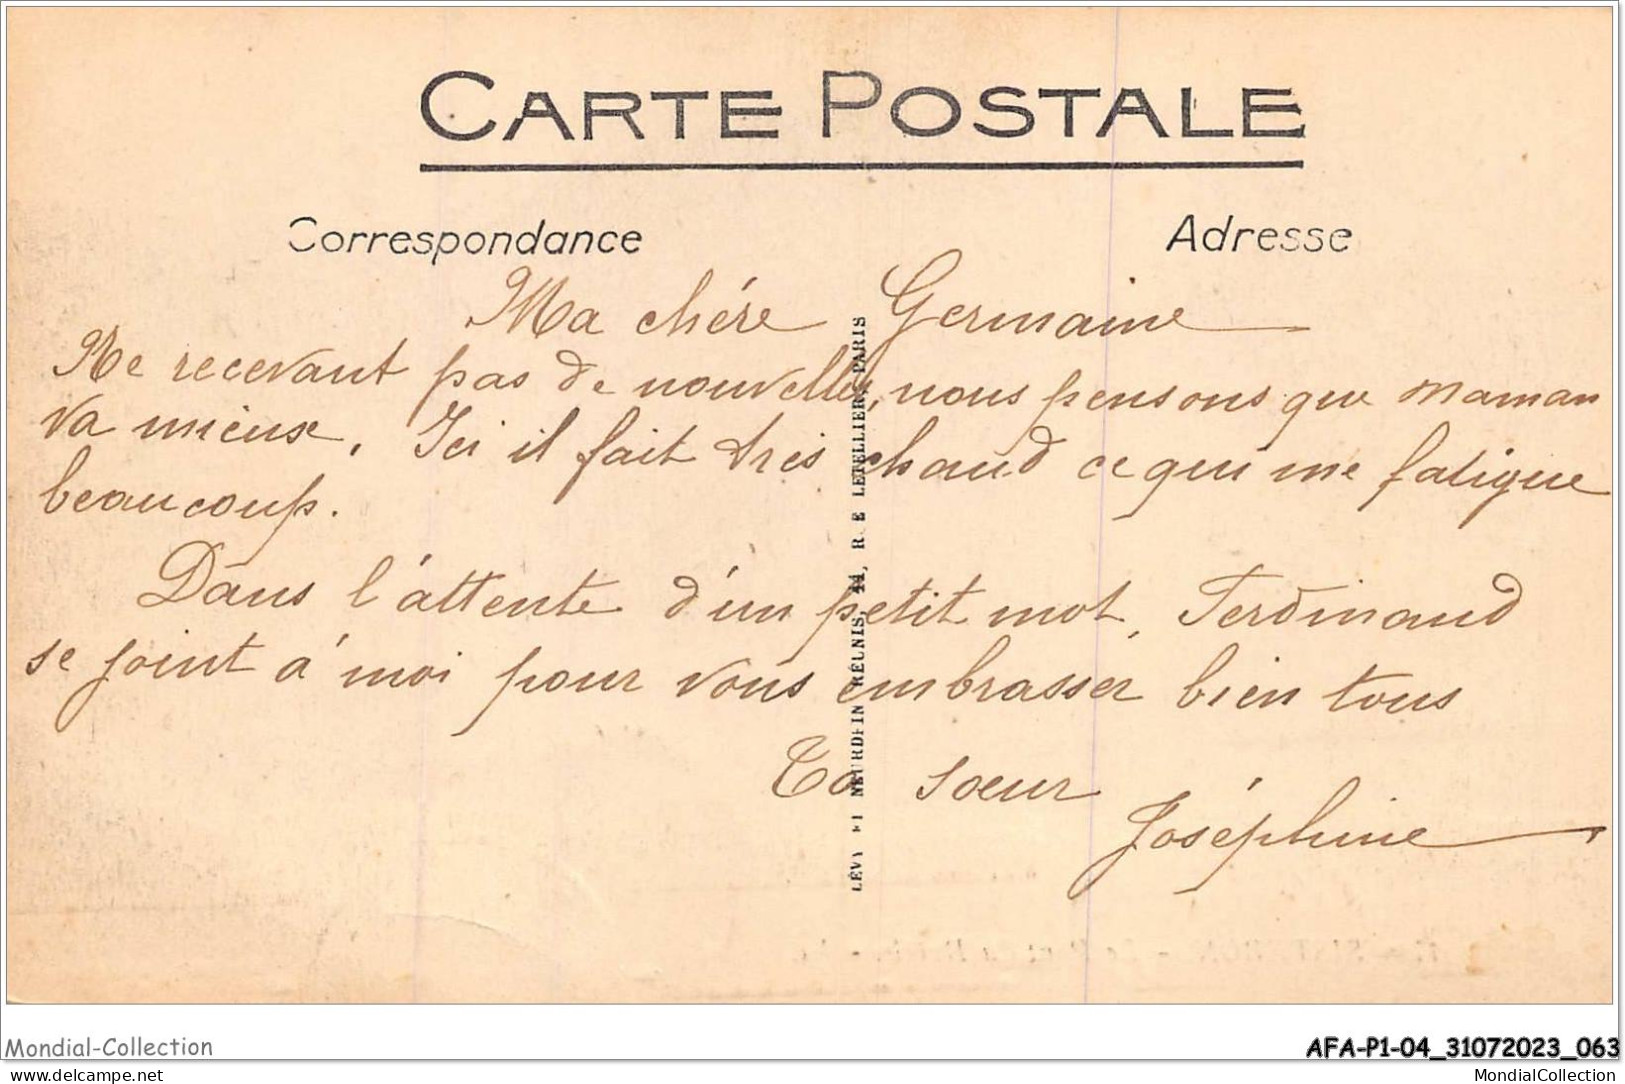 CARTE POSTALE
Correspondance
Adresse
Ma chére Germaine
Ne recevant pas de nouvelles, nous pensons que maman
va mieux. Ici il fait très chaud ce qui me fatigue
beaucoup.
Dans l'attente d'un petit mot, Ferdinand
se joint à moi pour vous embrasser bien tous
Ta sœur
Joséphine
LÉVY ET NEURDEIN RÉUNIS, 44, RUE LETELLIER, PARIS
Mondial-Collection
AFA-P1-04_31072023_063
delcampe.net
MondialCollection